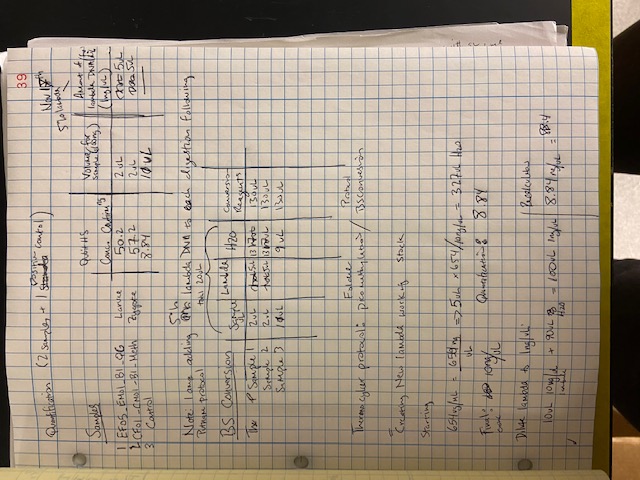 39
Quantification (2 samples + 1 Positive control)
Nov 17th
5% lambda
Samples
Qubit HS
Conc.
Volume for
sample (100ng)
Amount of
lambda DNA
(1ng/uL)
1 EF05_EM01_B1_OG Larvae 50.2 2uL 5uL
2 CF01_CM01_B1_Meth Zygote 57.2 2uL 5uL
3 Control 8.84 10uL
Note: I am adding 5% lambda DNA to each digestion following
protocol
total 20uL
BS Conversion
Sample uL Lambda H2O Conversion Reagents
Sample 1 2uL 5uL 13uL 130uL
Sample 2 2uL 5uL 13uL 130uL
Sample 3 10uL 9uL 130uL
Thermocycler protocol: Folder picomethylation / Protocol BSConversion
Creating New lambda working stock
Starting
654ng/uL = 654ng/uL => 5uL × 654/10ng/uL = 327uL H2O
Final: 10ng/uL Quantification: 8.84
Dilute lambda to 1ng/uL:
Recalculation
10uL 10ng/uL lambda + 90uL H2O = 100uL 1ng/uL
8.84ng/uL = 88.4